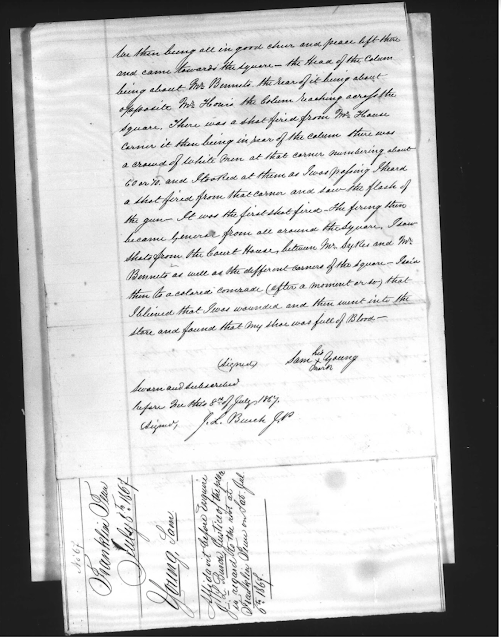 We then being all in good cheer and peace left there
and came towards the Square — the head of the Column
being about Mr Bennets the rear of it being about
opposite Mr House's the Column reaching across the
square. There was a shot fired from Mr House
corner it then being in rear of the column there was
a crowd of White men at that corner numbering about
60 or 70. and I looked at them as I was passing I heard
a shot fired from that corner and saw the flash of
the gun — It was the first shot fired — the firing then
became general from all around the Square, I saw
shots from the Court House, between Mr. Sykes and Mr.
Bennets as well as the different corners of the square — I said
then to a colored comrade (after a moment or so) that
I blived that I was wounded and then went into the
store and found that my shoe was full of Blood —
(Signed) Sam his X mark Young
Sworn and subscribed
before me this 8th of July 1867.
(Signed, J. L. Bunch J.P.
Franklin Tenn
July 8th 1867
Young, Sam
Affidavit before Esquire
J. L. Bunch, Justice of the peace
in regard to the riot at
Franklin Tenn on Sat Jul
6th 1867.